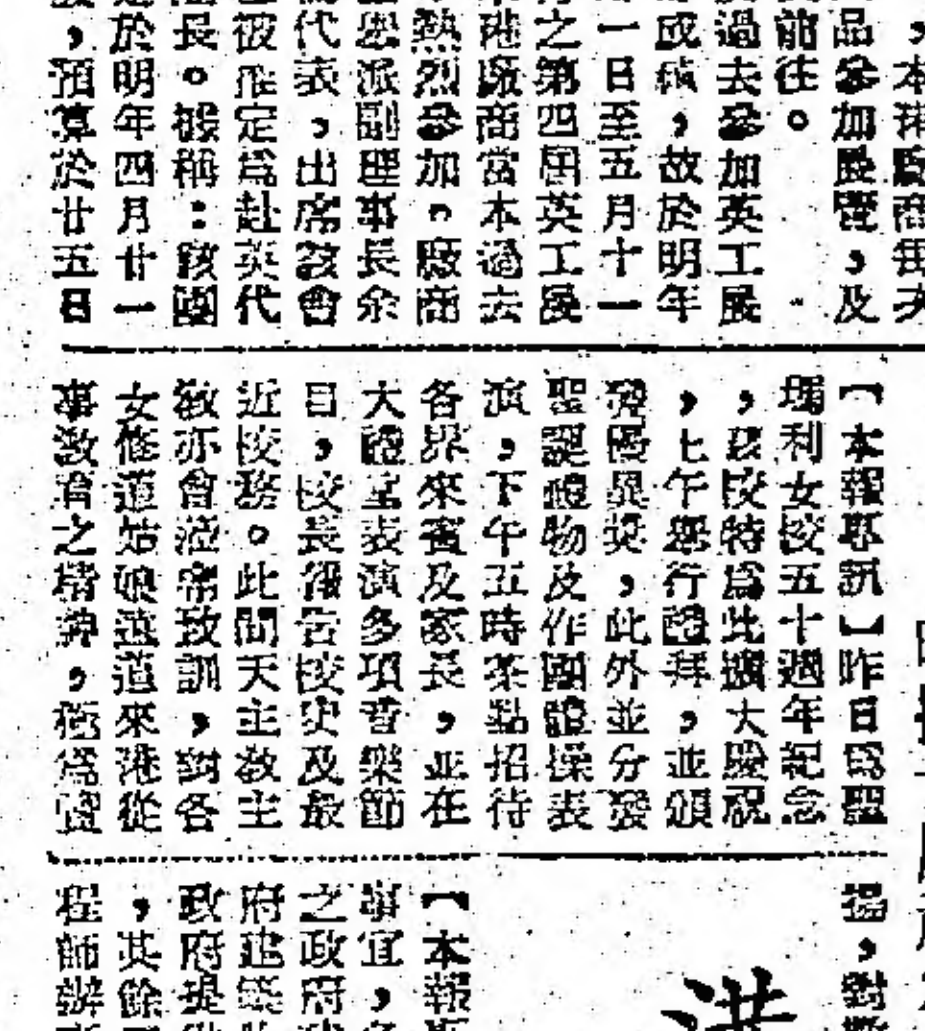 ，本港廠商
品參加展覽，及
前往。
過去參加英工展
成績，故於明年
一日至五月十一
之第四屆英工展
港廠商當本過去
熱烈參加。廠商
派副理事長余
代表，出席該會
被推定爲赴英代
長。據稱：該團
於明年四月廿一
，預算於廿五日
【本報專訊】昨日爲聖
瑪利女校五十週年紀念
，該校特爲此擴大慶祝
，上午舉行禮拜，並頒
發優異獎，此外並分發
聖誕禮物及作團體操表
演，下午五時茶點招待
各界來賓及家長，並在
大禮堂表演多項音樂節
目，校長報告校史及最
近校務。此間天主教主
教亦會蒞席致訓，對各
女修道姑娘遠道來港從
事教育之精神，極爲讚
揚，對
港
【本報
事宜，
之政府
府建築
政府提
，其餘
程師辦